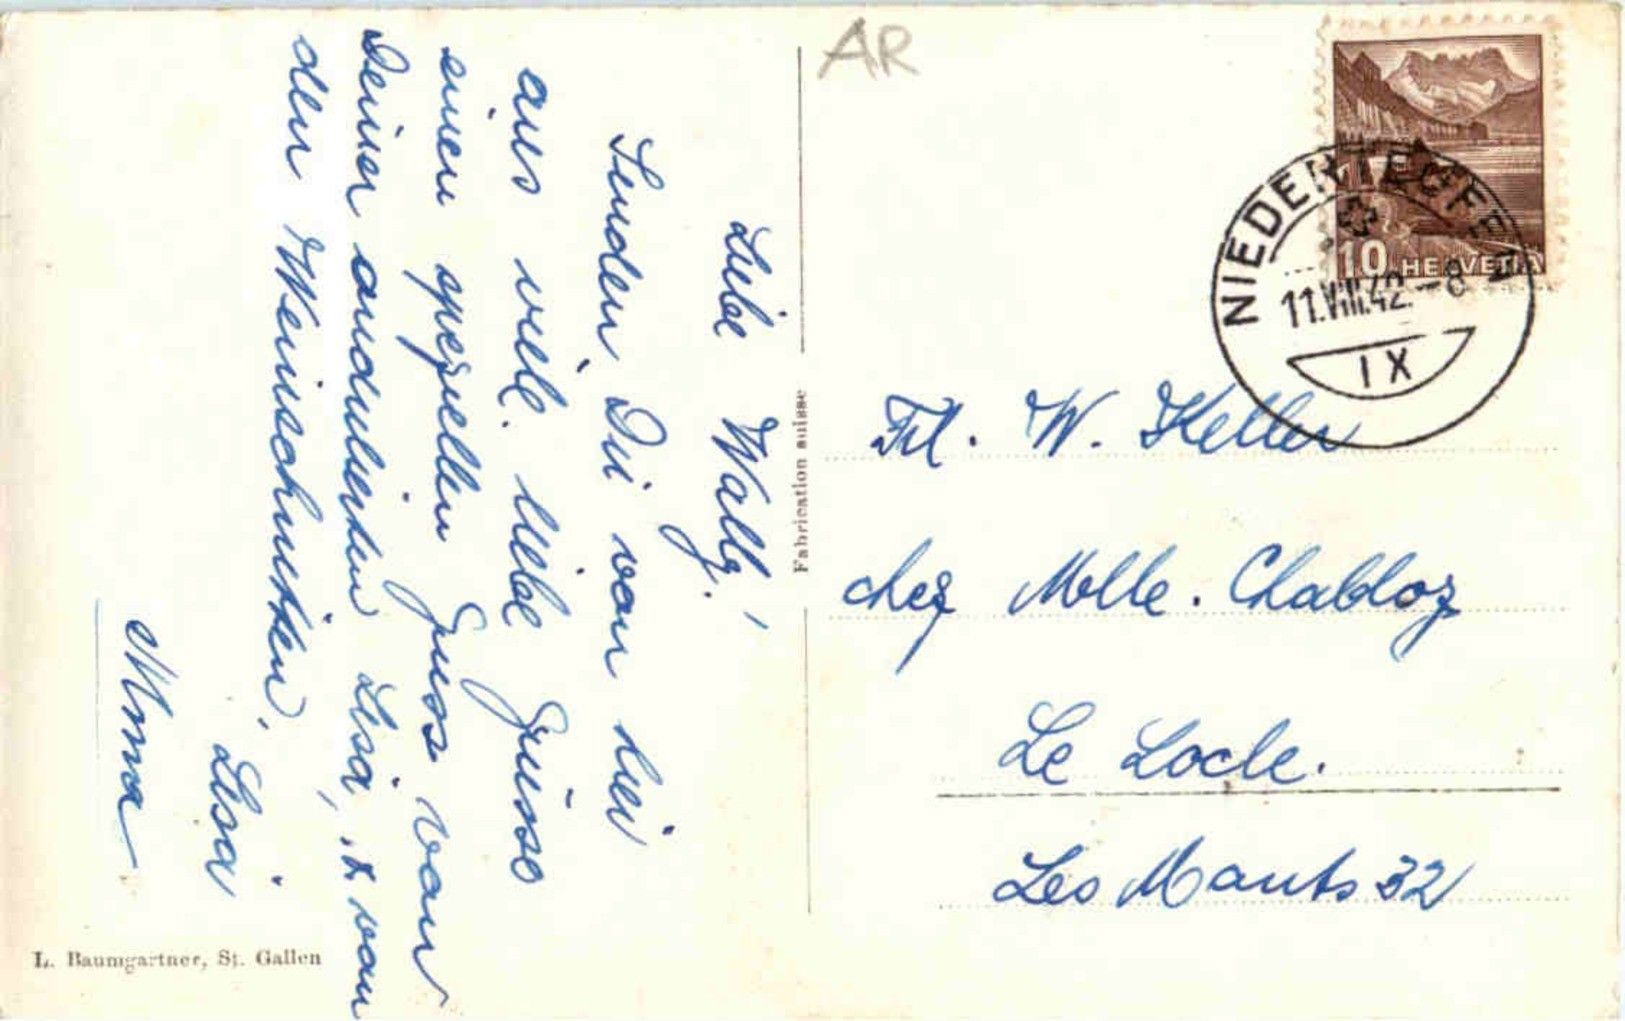 Liebe Wally!
Senden Dir von hier
aus viele liebe Grüsse
einen speziellen Gruss von
Deiner anderen Lisa, u. von
den
Lisa
Mina
L. Baumgartner, St. Gallen
Fabrication suisse
AR
HELVETIA
10
NIEDERTEUFEN
11.VIII.42.-8
IX
Frl. W. Keller
chez Melle. Chabloz
Le Locle.
Les Monts 32